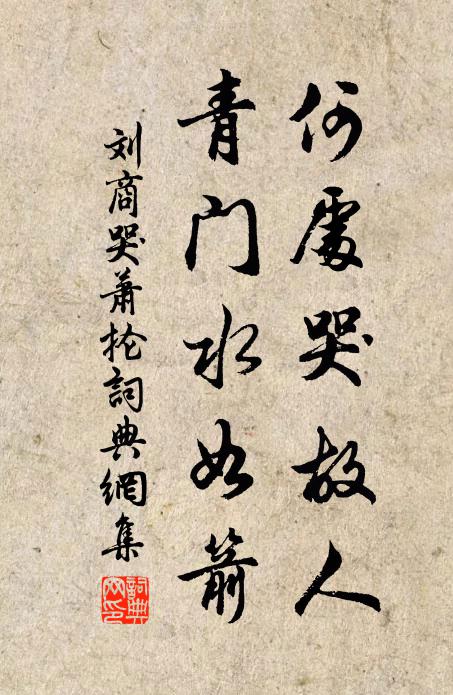 何處哭故人
青门水如箭
刘商哭萧抡詞典網集
詞典網印